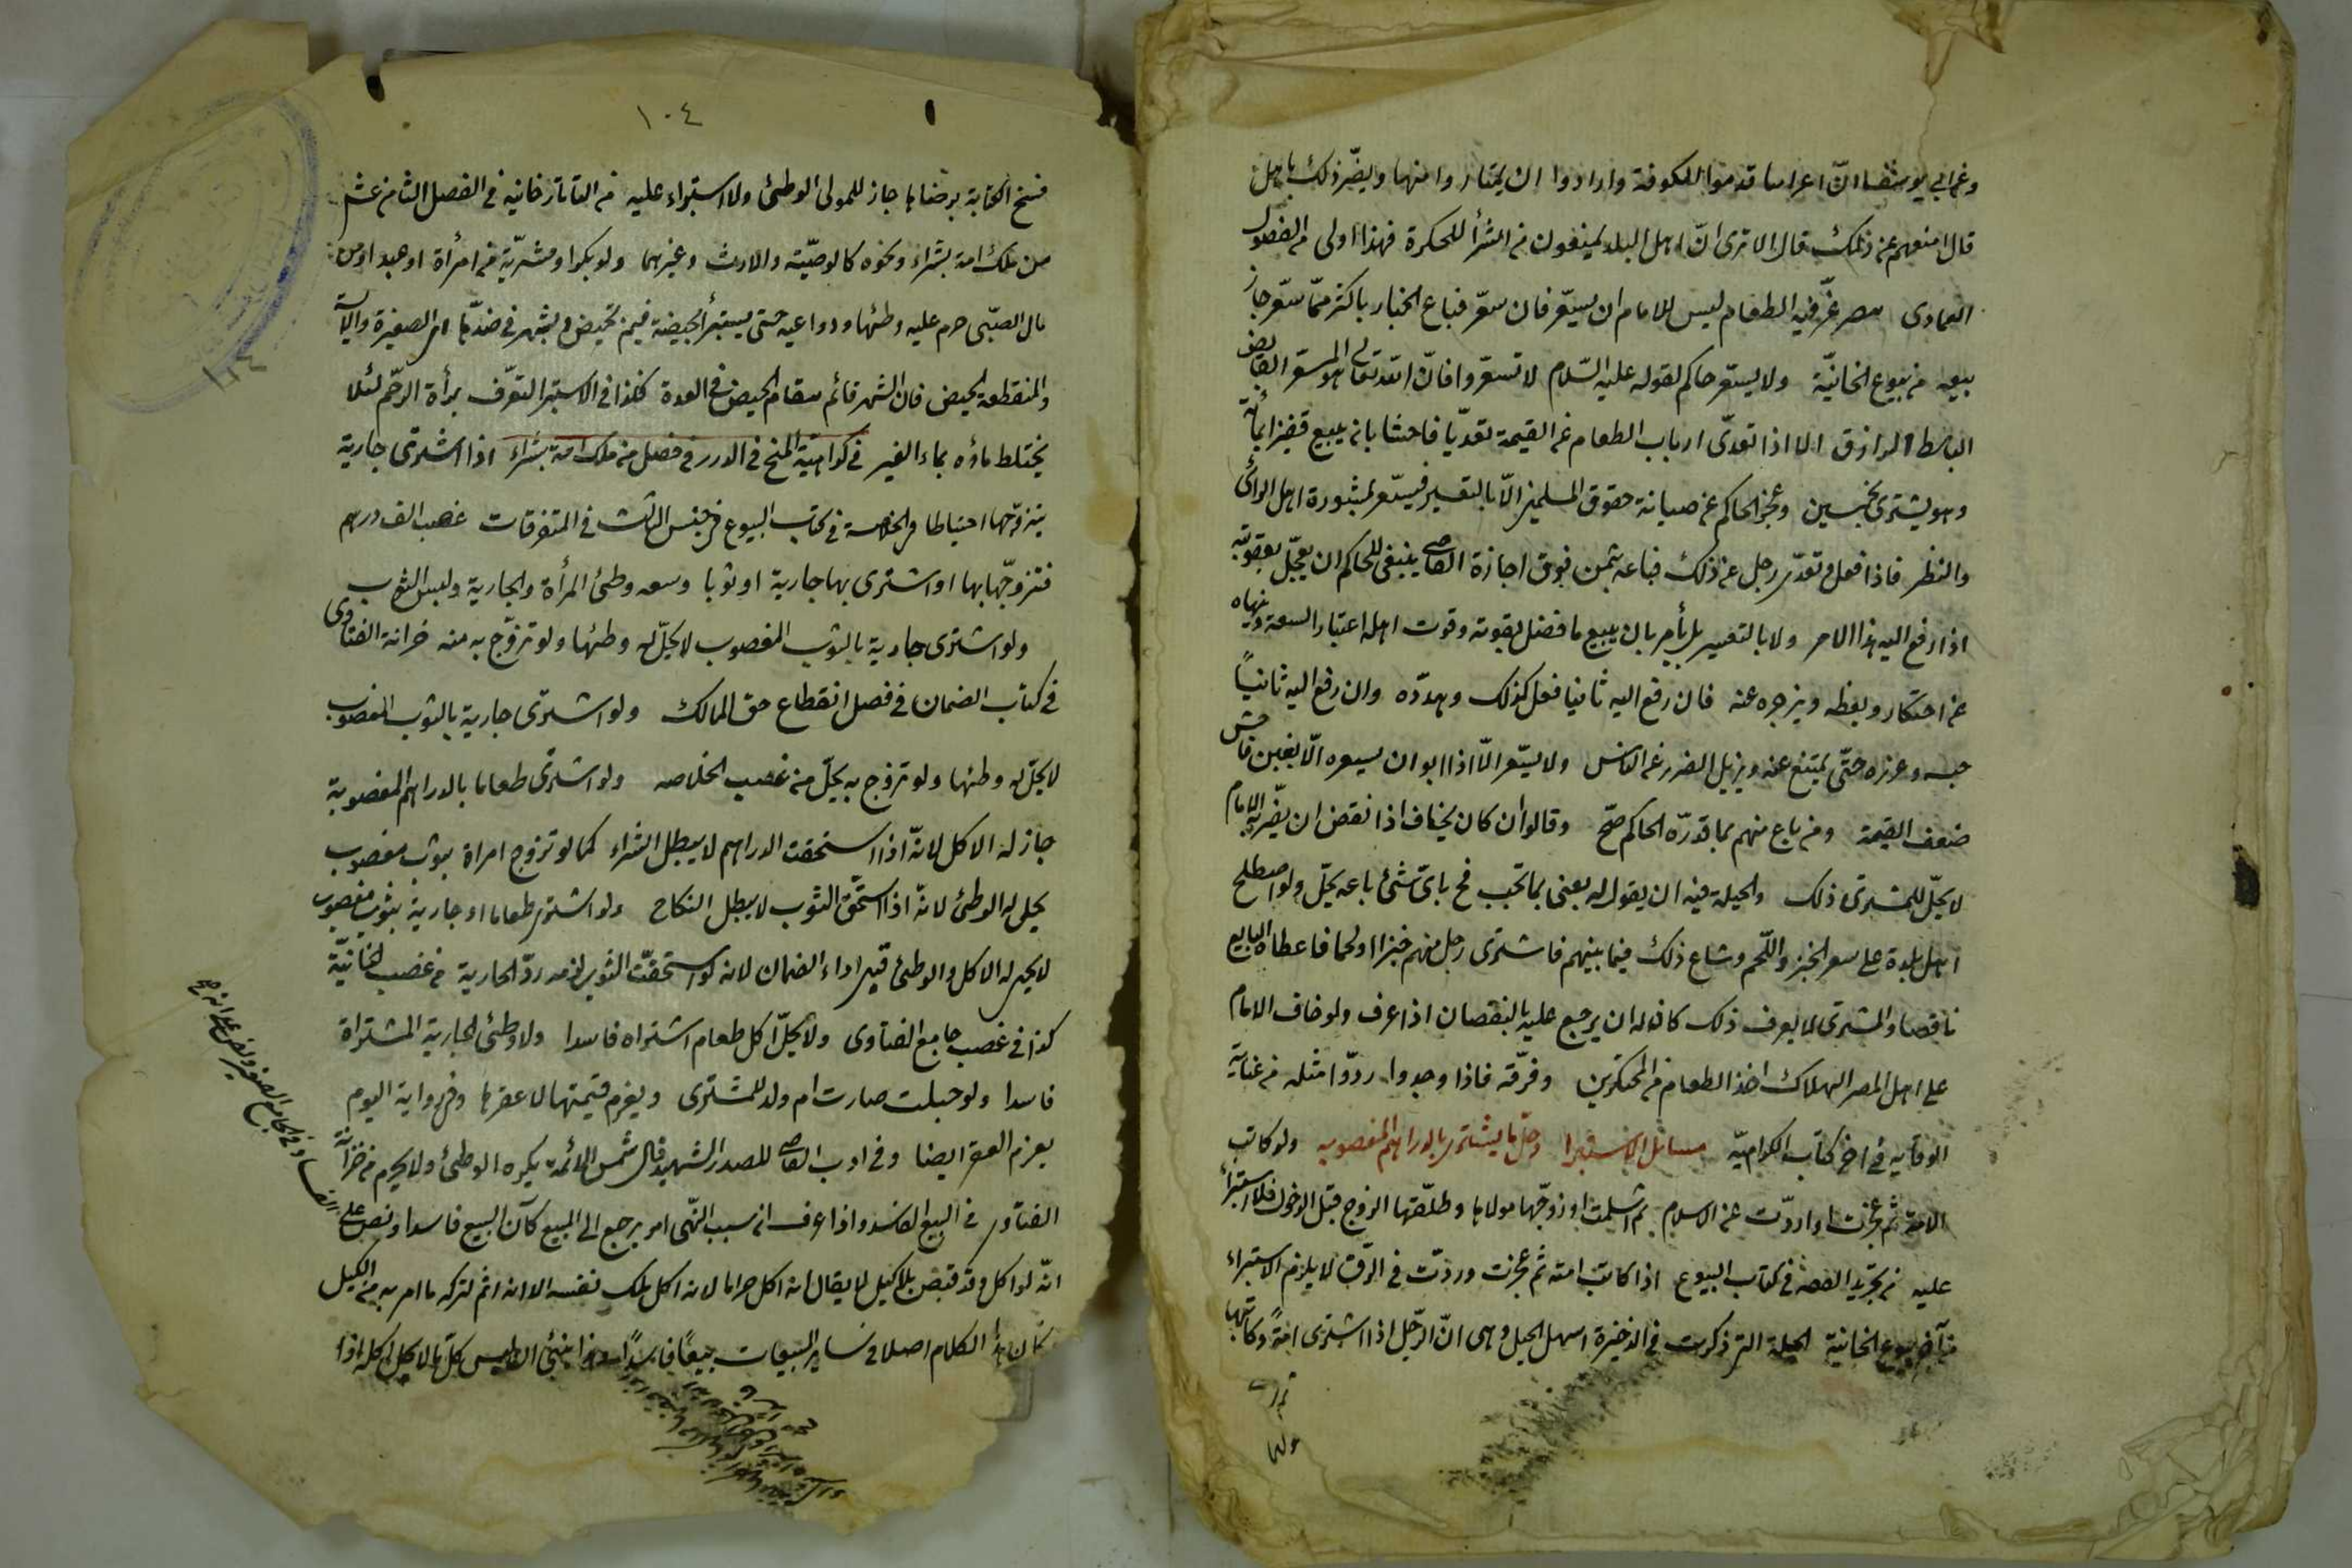 وعن ابي يوسف ان اعرابا قدموا الكوفة وارادوا ان يمتاروا منها ويضر ذلك باهل
قال امنعهم عن ذلك قال الا ترى ان اهل البلد يمنعون من الشرأ للحكرة فهذا اولى من الفصول
العمادى مصر غز فيه الطعام ليس للامام ان يسعر فان سعر فباع الخباز باكثر مما سعر جاز
بيعه من بيوع الخانية ولا يسعر حاكم لقوله عليه السلام لا تسعروا فان الله تعالى هو المسعر القابض
الباسط الرازق الا اذا تعدى ارباب الطعام عن القيمة تعديا فاحشا بان يبيع قفيزا بمائة
وهو يشترى بخمسين وعجز الحاكم عن صيانة حقوق المسلمين الا بالتسعير فيسعر بمشورة اهل الرأى
والنظر فاذا فعل وتعدى رجل عن ذلك فباعه بثمن فوق اجازة القاضى ينبغى للحاكم ان يعجل بعقوبته
اذا رفع اليه هذا الامر ولا بالتسعير بل يأمر بان يبيع ما فضل بقوته وقوت اهله اعتبار السعة وينهاه
عن احتكار ويعظه ويزجره عنه فان رفع اليه ثانيا فعل كذلك وهدده وان رفع اليه ثانياً
حبسه وعزره حتى يمتنع عنه ويزيل الضرر عن الناس ولا يسعر الا اذا ابوا ان يبيعوه الا بغبن فاحش
ضعف القيمة ومن باع منهم بما قدره الحاكم صح وقالوا ان كان يخاف اذا نقص ان يضربه الامام
لا يحل للمشترى ذلك والحيلة فيه ان يقول له بعنى بما تحب فح باى شئ باعه يحل ولو اصطلح
اهل بلدة على سعر الخبز واللحم وشاع ذلك فيما بينهم فاشترى رجل منهم خبزا او لحما فاعطاه البايع
ناقصا والمشترى لا يعرف ذلك كان له ان يرجع عليه بالنقصان اذا عرف ولو خاف الامام
على اهل المصر الهلاك اخذ الطعام من المحتكرين وفرقه فاذا وجدوا ردوا مثله من غناية
الوقاية فى اخر كتاب الكراهية مسائل الاستبرا وحل ما يشترى بالدراهم المغصوبه ولو كاتب
الامة ثم عجزت او ارتدت عن الاسلام ثم اسلمت او زوجها مولاها وطلقها الزوج قبل الدخول فلا استبرأ
عليه من تجريد القصه فى كتاب البيوع اذا كاتب امته ثم عجزت وردت فى الرق لا يلزم الاستبراء
من آخر بيوع الخانية الحيلة التى ذكرت فى الذخيرة اسهل الحيل وهى ان الرجل اذا اشترى امةً وكاتبها
١٠٤
فسخ الكتابة برضاها جاز للمولى الوطئ ولا استبراء عليه من التاتارخانيه فى الفصل الثامن عشر
من ملك امة بشراء ونحوه كالوصية والارث وغيرهما ولو بكرا او مشرية من امرأة او عبد او من
مال الصبى حرم عليه وطئها ودواعيه حتى يستبرأ بحيضة فيمن تحيض وبشهر فى ضدها اى الصغيرة والآيسة
والمنقطعه الحيض فان الشهر قائم مقام الحيض فى العدة فكذا فى الاستبراء لتعرف برأة الرحم لئلا
يختلط ماؤه بماء الغير فى كراهية المنح فى الدرر فى فصل من ملك امة بشراء اذا اشترى جارية
يتزوجها احتياطا من الخلاصة فى كتاب البيوع فى جنس الثالث فى المتفرقات غصب الف درهم
فتزوجها بها او اشترى بها جارية او ثوبا وسعه وطئ المرأة والجارية ولبس الثوب
ولو اشترى جارية بالثوب المغصوب لا يحل له وطئها ولو تزوج به منه خزانة الفتاوى
فى كتاب الضمان فى فصل انقطاع حق المالك ولو اشترى جارية بالثوب المغصوب
لا يحل له وطئها ولو تزوج به يحل من غصب الخلاصه ولو اشترى طعاما بالدراهم المغصوبة
جاز له الاكل لانه اذا استحقت الدراهم لا يبطل الشراء كما لو تزوج امراة بثوب مغصوب
يحل له الوطئ لانه اذا استحق الثوب لا يبطل النكاح ولو اشترى طعاما او جارية بثوب مغصوب
لا يحل له الاكل والوطئ قبل اداء الضمان لانه لو استحقت الثوب لزمه رد الجارية من غصب الخانية
كذا فى غصب جامع الفتاوى ولا يحل اكل طعام اشتراه فاسدا ولا وطئ الجارية المشتراة
فاسدا ولو حبلت صارت ام ولد للمشترى ويغرم قيمتها لا عقرها وفى رواية اليوم
يغرم العقر ايضا وفى ادب القاضى للصدر الشهيد قال شمس الائمة يكره الوطئ ولا يحرم من خزانة
الفتاوى فى البيع الفاسد واذا عرف ان سبب النهى امر يرجع الى المبيع كان البيع فاسدا ونص على
انه لو اكل وقد قبض بلا كيل لا يقال انه اكل حراما لانه اكل ملك نفسه الا انه اثم لتركه ما امر به من الكيل
فكان هذا الكلام اصلا فى ساير البيعات بيعًا فاسدًا
وفى الجامع الصغير ونص على انه